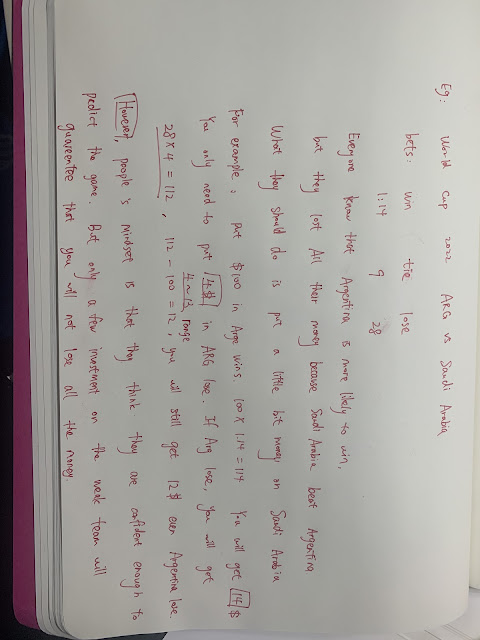 Eg: World Cup 2022 ARG vs Saudi Arabia
bets: win tie lose
1:14 9 28
Everyone know that Argentina is more likely to win,
but they lost All their money because Saudi Arabia beat Argentina
What they should do is put a little bit money on Saudi Arabia
For example: put $100 in Arge wins. 100 x 1.14 = 114 You will get 14 $
You only need to put 4$ in ARG lose. If Arg lose, you will get
4~13 range
28 x 4 = 112, 112 - 100 = 12, you will still get 12$ even Argentina lose.
However, people's mindset is that they think they are confident enough to
pedict the game. But only a few investment on the weak team will
guareentee that you will not lose all the money.